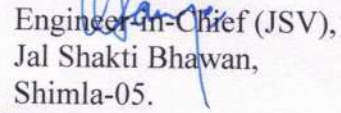 Engineer-in-Chief (JSV),
Jal Shakti Bhawan,
Shimla-05.